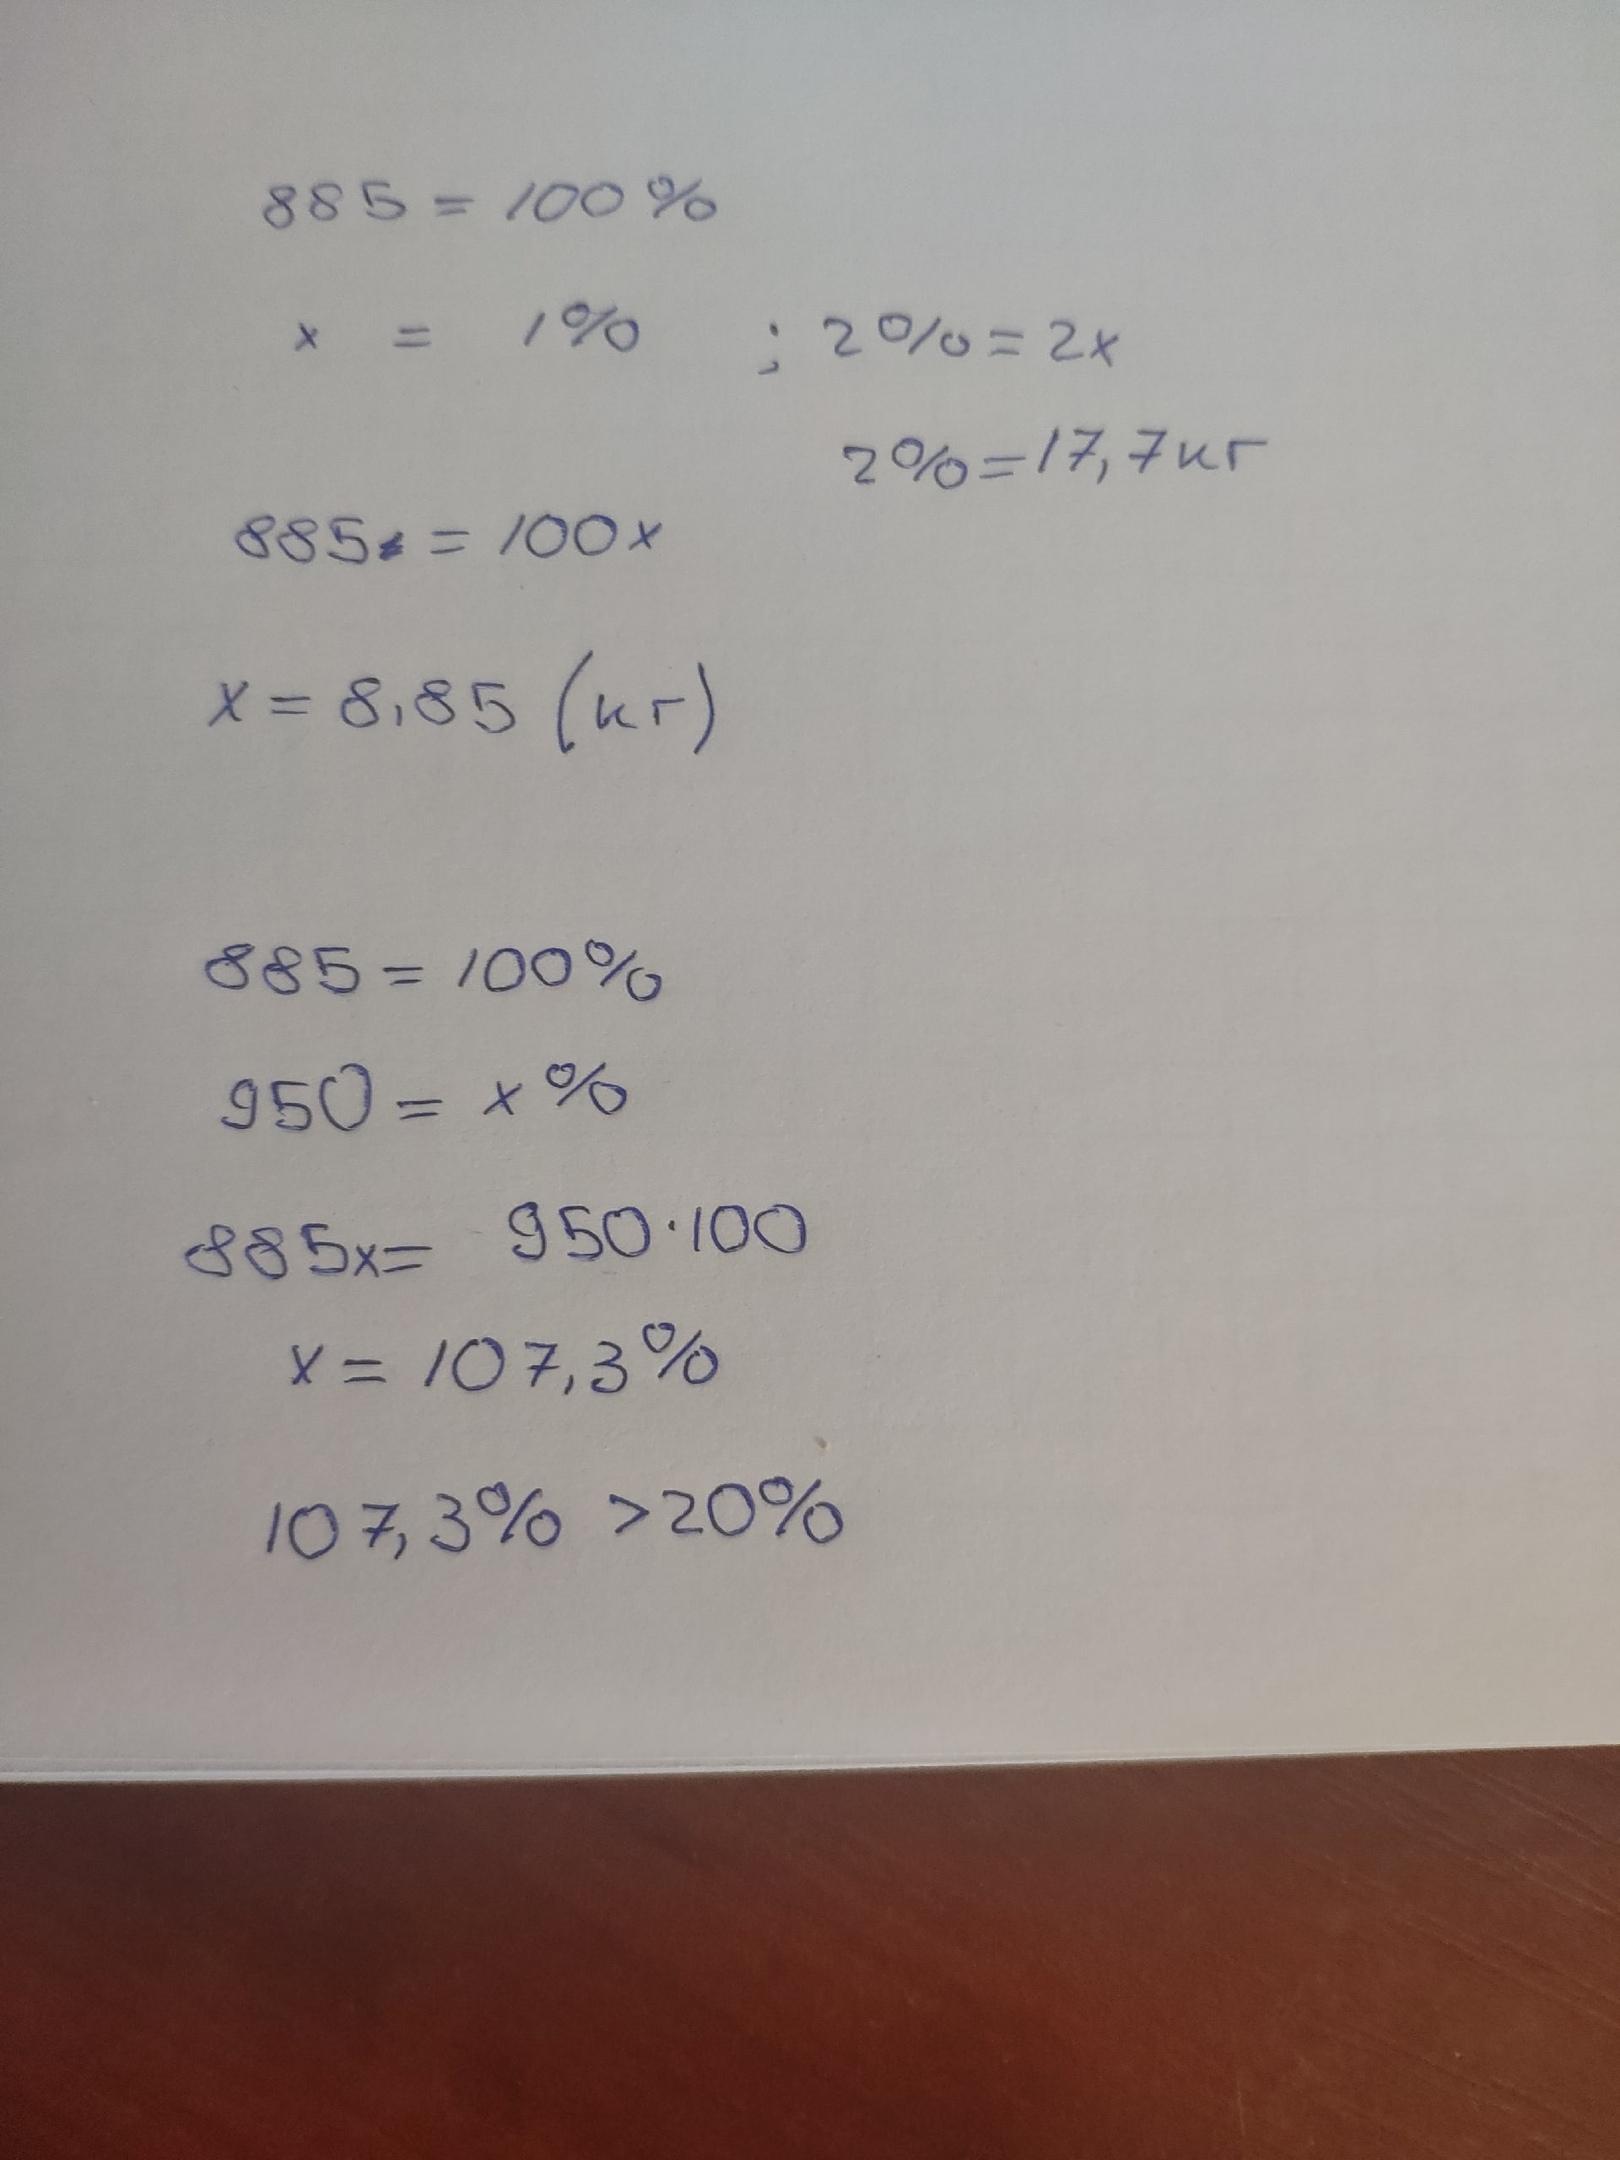 885 = 100%
x = 1% ; 2% = 2x
2% = 17,7кг
885 = 100x
x = 8,85 (кг)
885 = 100%
950 = x%
885x = 950·100
x = 107,3%
107,3% > 20%